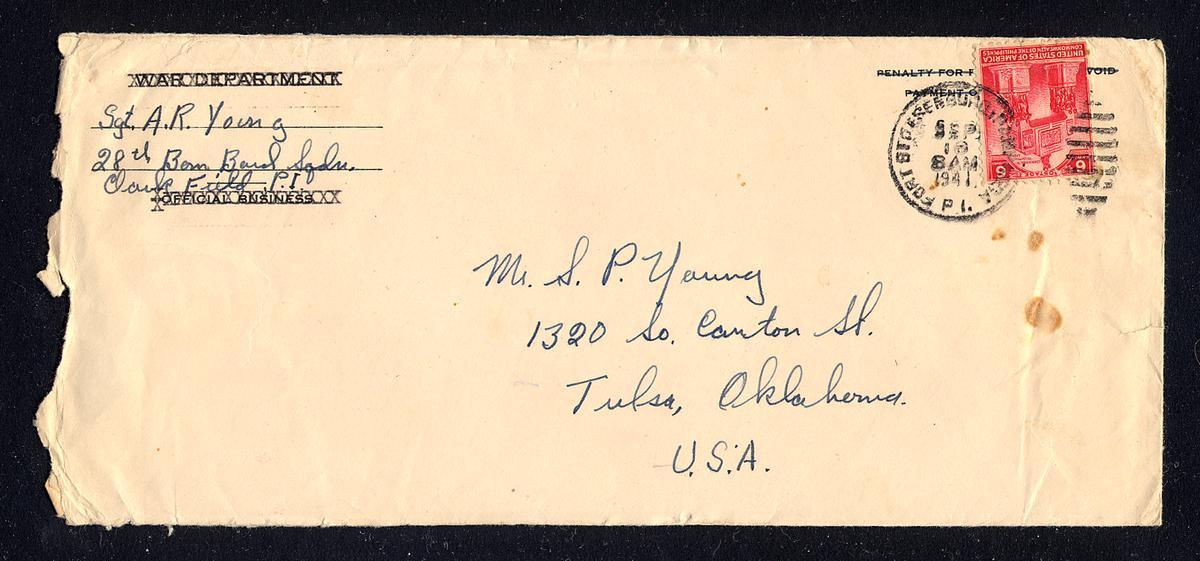 WAR DEPARTMENT
Sgt. A.R. Young
28th Bom Bard Sqdn.
Clark Field P.I.
OFFICIAL BUSINESS
PENALTY FOR VOID
PAYMENT
FORT STOTSENBURG, PAMPANGA
SEP
8 AM
1941
P.I.
UNITED STATES OF AMERICA
COMMONWEALTH OF THE PHILIPPINES
POSTAGE
6 6
Mr. S. P. Young
1320 So. Canton St.
Tulsa, Oklahoma.
U.S.A.